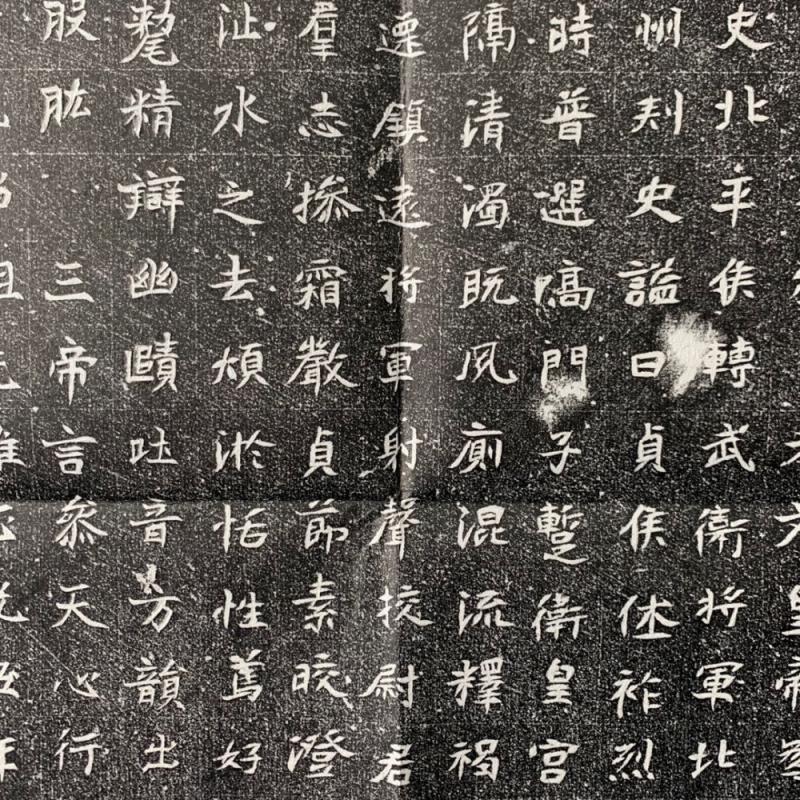 皇帝
史北平侯轉武衛將軍北
州刾史謚曰貞侯休祚烈
時普選高門子蹔衛皇宮
隔清濁既夙廁混流釋褐
遷鎮遠將軍射聲挍尉君
羣志摻霜嚴貞節素皎澄
沚水之去煩淤恬性篤好
精辯幽賾吐音方韻出
股肱 三帝言叅天心行